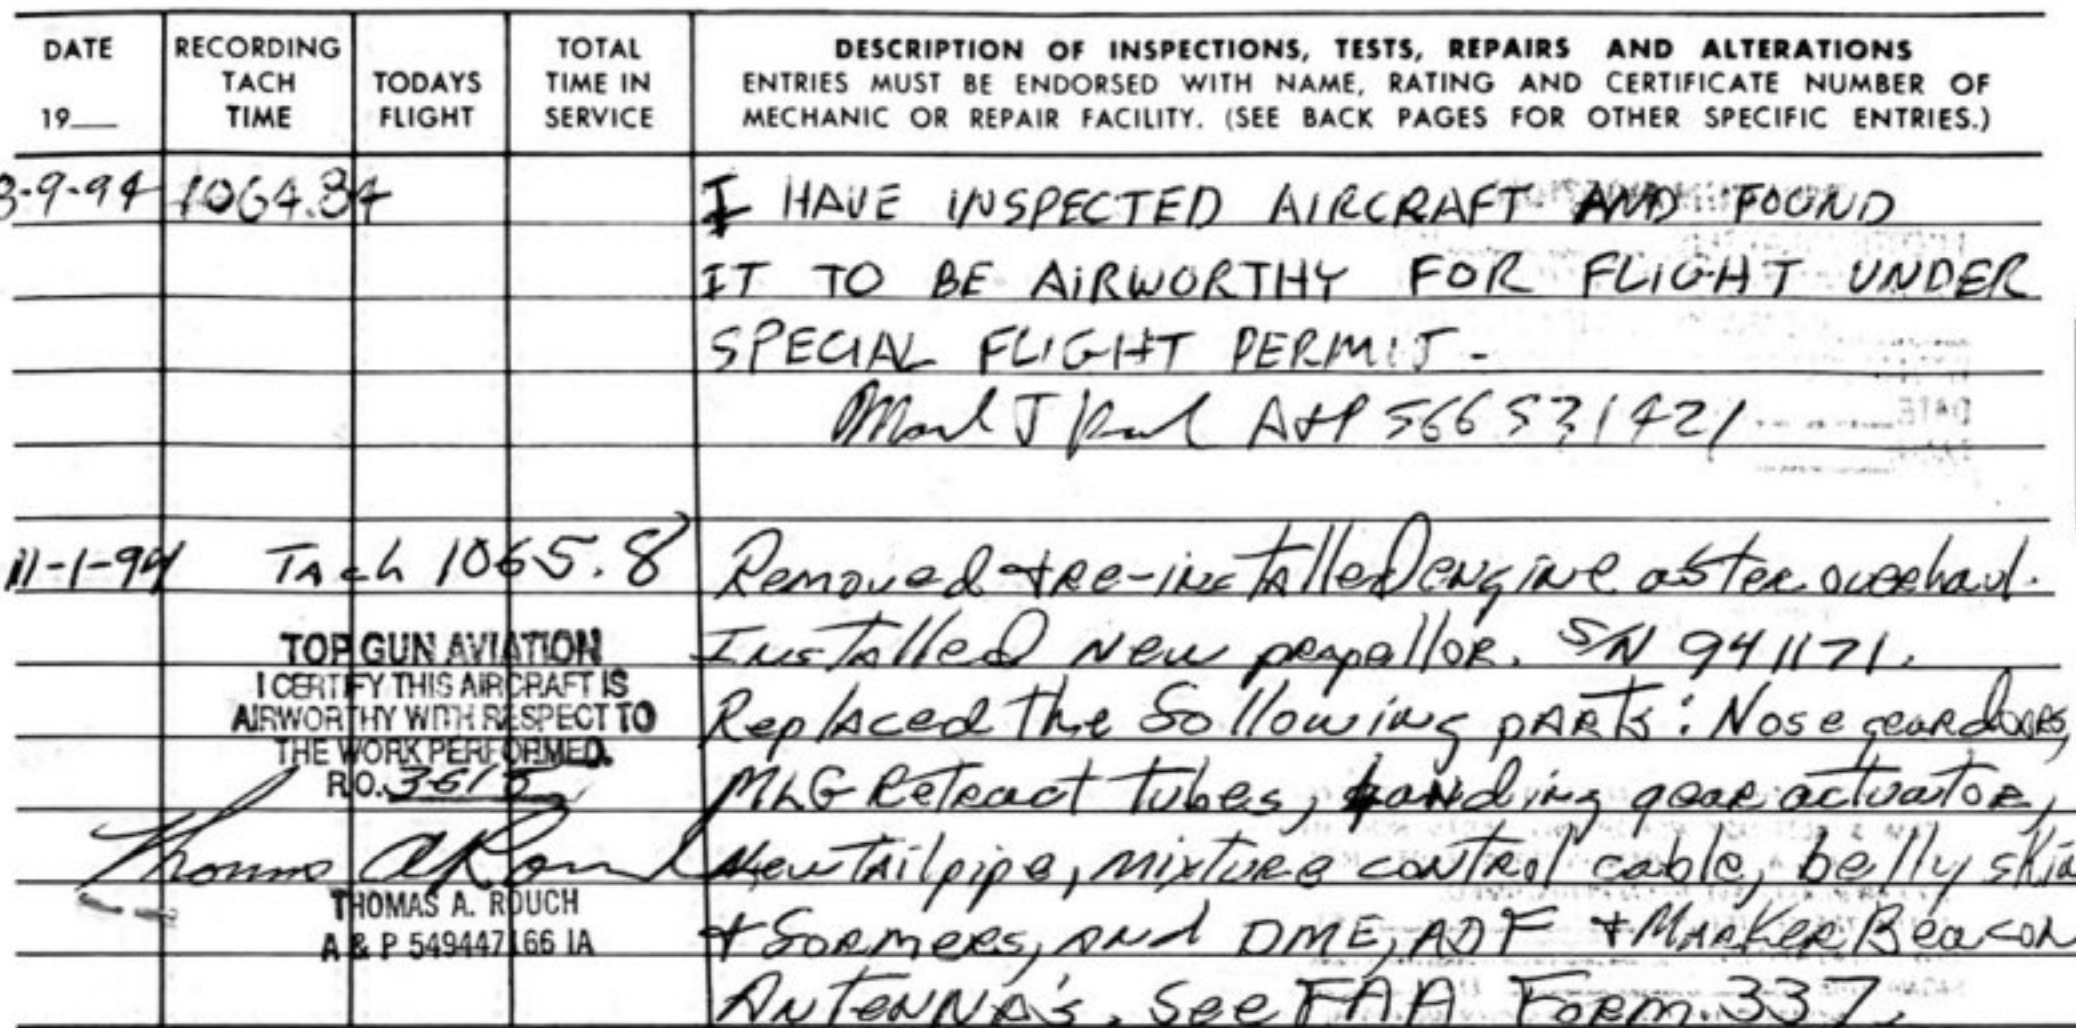 DATE
19
RECORDING
TACH
TIME
TODAYS
FLIGHT
TOTAL
TIME IN
SERVICE
DESCRIPTION OF INSPECTIONS, TESTS, REPAIRS AND ALTERATIONS
ENTRIES MUST BE ENDORSED WITH NAME, RATING AND CERTIFICATE NUMBER OF
MECHANIC OR REPAIR FACILITY. (SEE BACK PAGES FOR OTHER SPECIFIC ENTRIES.)
3-9-94 1064.84 I HAVE INSPECTED AIRCRAFT AND FOUND
IT TO BE AIRWORTHY FOR FLIGHT UNDER
SPECIAL FLIGHT PERMIT-
J A&P 566531421
11-1-94 Tach 1065.8 Removed & re-installed engine after overhaul.
Installed New propellor. S/N 941171.
Replaced the following parts: Nose gear doors,
MLG Retract tubes, landing gear actuator,
New tailpipe, mixture control cable, belly skin
& formers, and DME, ADF & Marker Beacon
Antenna's. See FAA Form 337.
TOP GUN AVIATION
I CERTIFY THIS AIRCRAFT IS
AIRWORTHY WITH RESPECT TO
THE WORK PERFORMED.
R.O. 3615
Thomas A Rouch
THOMAS A. ROUCH
A & P 549447166 IA